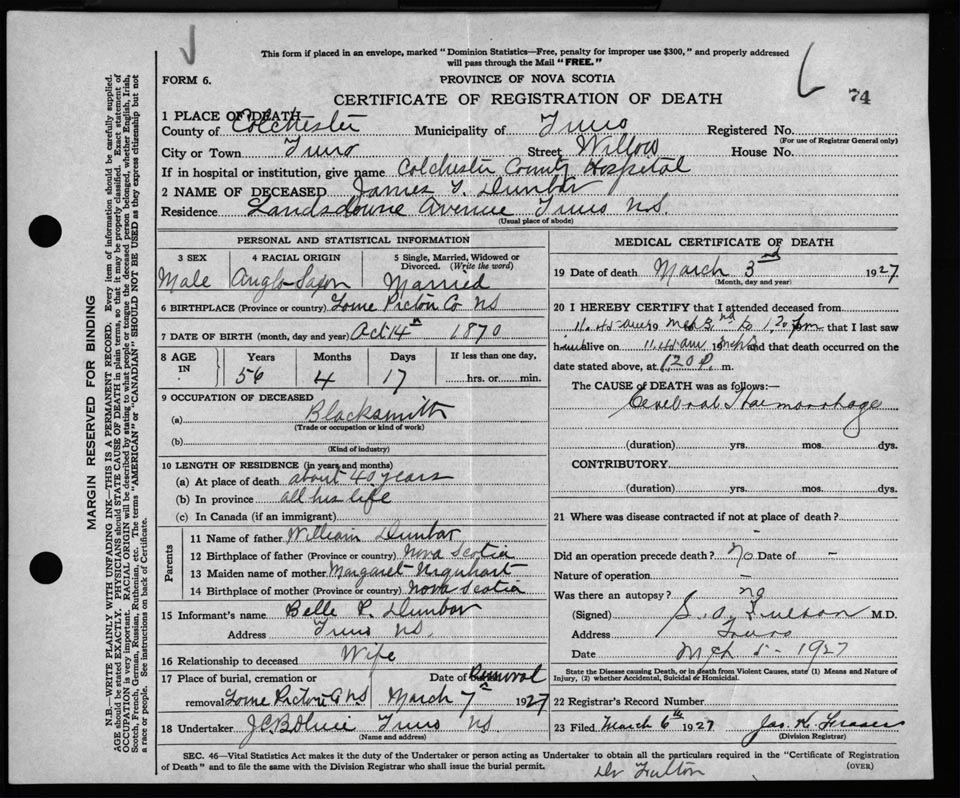 This form if placed in an envelope, marked "Dominion Statistics—Free, penalty for improper use $300," and properly addressed
will pass through the Mail "FREE."
FORM 6.
PROVINCE OF NOVA SCOTIA
74
CERTIFICATE OF REGISTRATION OF DEATH
1 PLACE OF DEATH
County of Colchester Municipality of Truro Registered No.
(For use of Registrar General only)
City or Town Truro Street Willow House No.
If in hospital or institution, give name Colchester County Hospital
2 NAME OF DECEASED James Y. Dunbar
Residence Landsdowne Avenue Truro N.S.
(Usual place of abode)
PERSONAL AND STATISTICAL INFORMATION
3 SEX 4 RACIAL ORIGIN 5 Single, Married, Widowed or Divorced. (Write the word)
Male Anglo-Saxon Married
6 BIRTHPLACE (Province or country) Lorne Pictou Co NS
7 DATE OF BIRTH (month, day and year) Oct 14th 1870
8 AGE IN Years Months Days If less than one day,
56 4 17 hrs. or min.
9 OCCUPATION OF DECEASED
(a) Blacksmith
(Trade or occupation or kind of work)
(b)
(Kind of industry)
10 LENGTH OF RESIDENCE (in years and months)
(a) At place of death about 40 years
(b) In province all his life
(c) In Canada (if an immigrant)
Parents
11 Name of father William Dunbar
12 Birthplace of father (Province or country) Nova Scotia
13 Maiden name of mother Margaret Urquhart
14 Birthplace of mother (Province or country) Nova Scotia
15 Informant's name Belle P. Dunbar
Address Truro NS.
16 Relationship to deceased Wife
17 Place of burial, cremation or Date of Removal
removal Lorne Pictou Co NS March 7th 1927
18 Undertaker Truro NS
(Name and address)
MEDICAL CERTIFICATE OF DEATH
19 Date of death March 3rd 1927
(Month, day and year)
20 I HEREBY CERTIFY that I attended deceased from
11.45 am 19 Mch 3rd to 1.20 pm that I last saw
him alive on 11.45 am 19 Mch 3 and that death occurred on the
date stated above, at 1.20 P. m.
The CAUSE OF DEATH was as follows:—
Cerebral Haemorrhage
(duration) yrs. mos. dys.
CONTRIBUTORY
(duration) yrs. mos. dys.
21 Where was disease contracted if not at place of death?
-
Did an operation precede death? No Date of -
Nature of operation -
Was there an autopsy? no
(Signed) Fulton M.D.
Address Truro
Date Mch 5 - 1927
State the Disease causing Death, or in death from Violent Causes, state (1) Means and Nature of
Injury, (2) whether Accidental, Suicidal or Homicidal.
22 Registrar's Record Number
23 Filed March 6th 1927 Jas. K. Fraser
(Division Registrar)
SEC. 46—Vital Statistics Act makes it the duty of the Undertaker or person acting as Undertaker to obtain all the particulars required in the "Certificate of Registration
of Death" and to file the same with the Division Registrar who shall issue the burial permit.
(OVER)
Dr Fulton
MARGIN RESERVED FOR BINDING
N.B.—WRITE PLAINLY WITH UNFADING INK—THIS IS A PERMANENT RECORD. Every item of information should be carefully supplied.
AGE should be stated EXACTLY. PHYSICIANS should STATE CAUSE OF DEATH in plain terms, so that it may be properly classified. Exact statement of
OCCUPATION is very important. RACIAL ORIGIN will be described by stating to what people or tongue the deceased person belonged, whether English, Irish,
Scotch, French, German, Russian, Ruthenian, etc. The terms "AMERICAN" or "CANADIAN" SHOULD NOT BE USED as they express citizenship but not
a race or people. See instructions on back of Certificate.